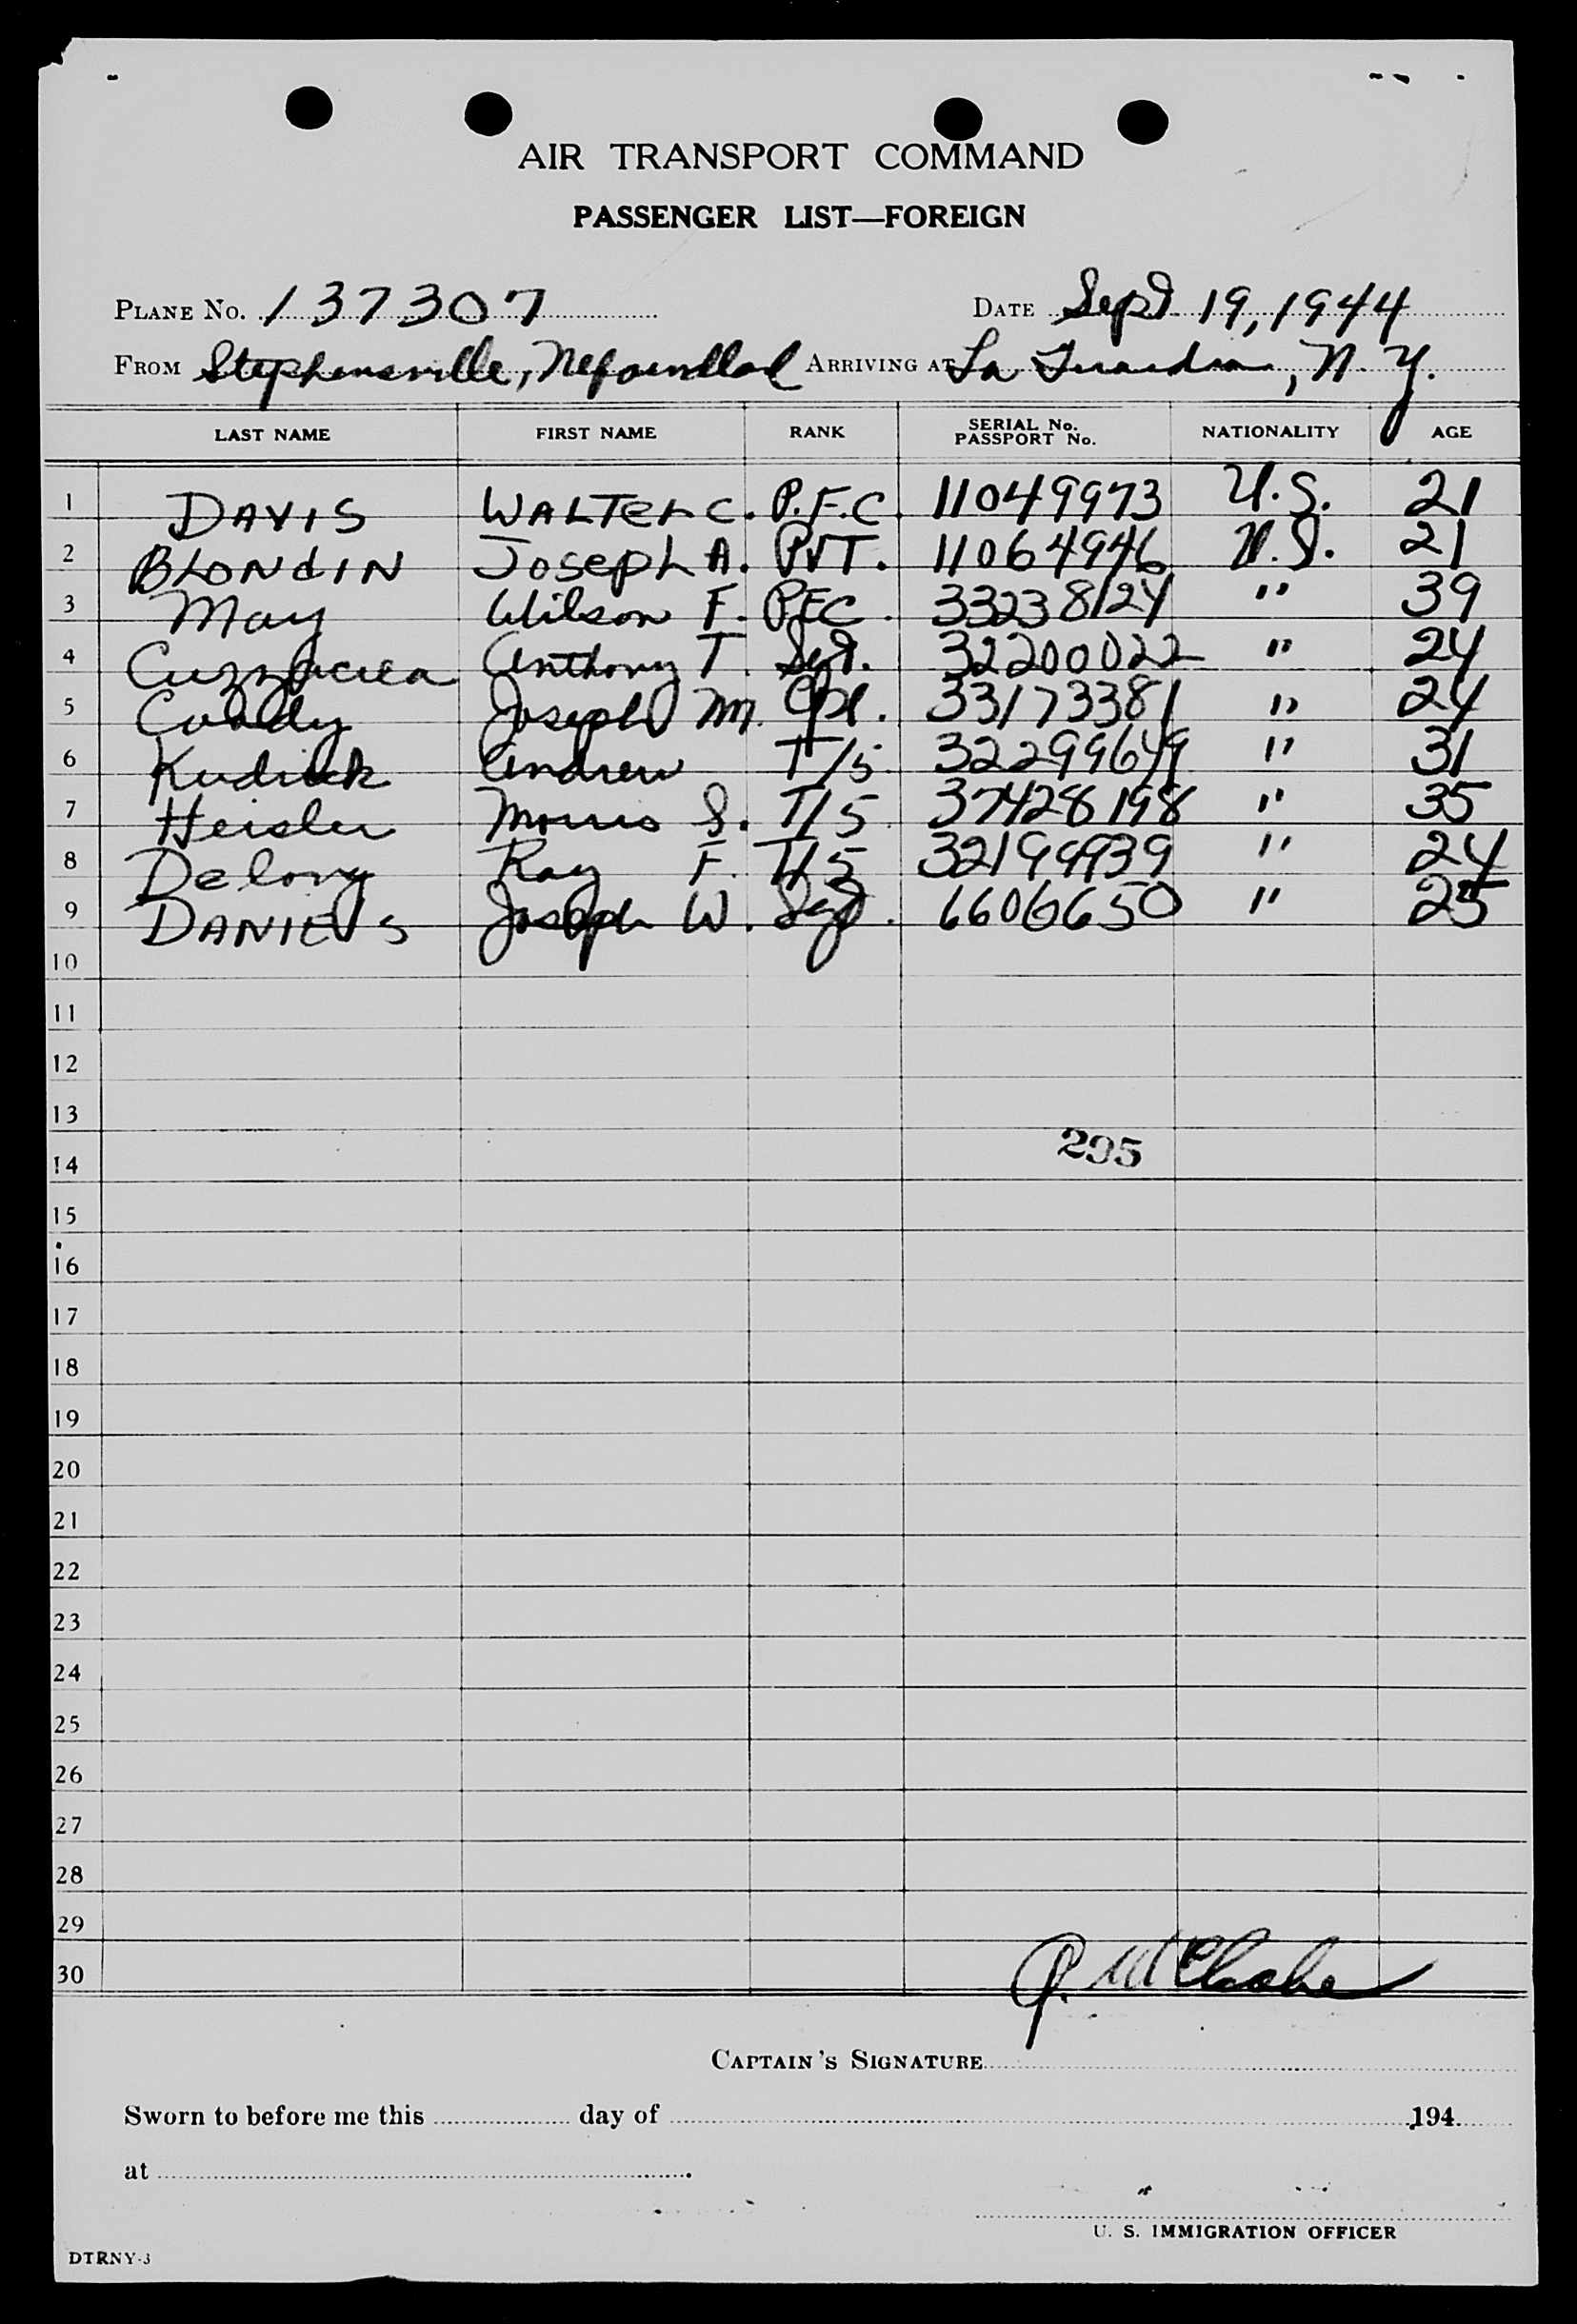 AIR TRANSPORT COMMAND
PASSENGER LIST—FOREIGN
PLANE No. 137307 DATE Sept 19, 1944
FROM Stephensville, Nefoundlad ARRIVING AT La Guardia, N.Y.
LAST NAME FIRST NAME RANK SERIAL No. PASSPORT No. NATIONALITY AGE
1 DAVIS WALTER C. P.F.C. 11049973 U.S. 21
2 BLONDIN JOSEPH A. PVT. 11064946 U.S. 21
3 May Wilson F. PFC. 33238124 " 39
4 Anthony T. Sgt. 32200022 " 24
5 Joseph M. Cpl. 33173381 " 24
6 Andrew T/5. 32299649 " 31
7 Heisler Morris S. T/5 37428198 " 35
8 Delong Ray F. T/5 " 24
9 DANIELS Joseph W. Sgt. 6606650 " 25
10
11
12
13
295
14
15
16
17
18
19
20
21
22
23
24
25
26
27
28
29
30
CAPTAIN'S SIGNATURE
Sworn to before me this day of 194
at
U. S. IMMIGRATION OFFICER
DTRNY-3